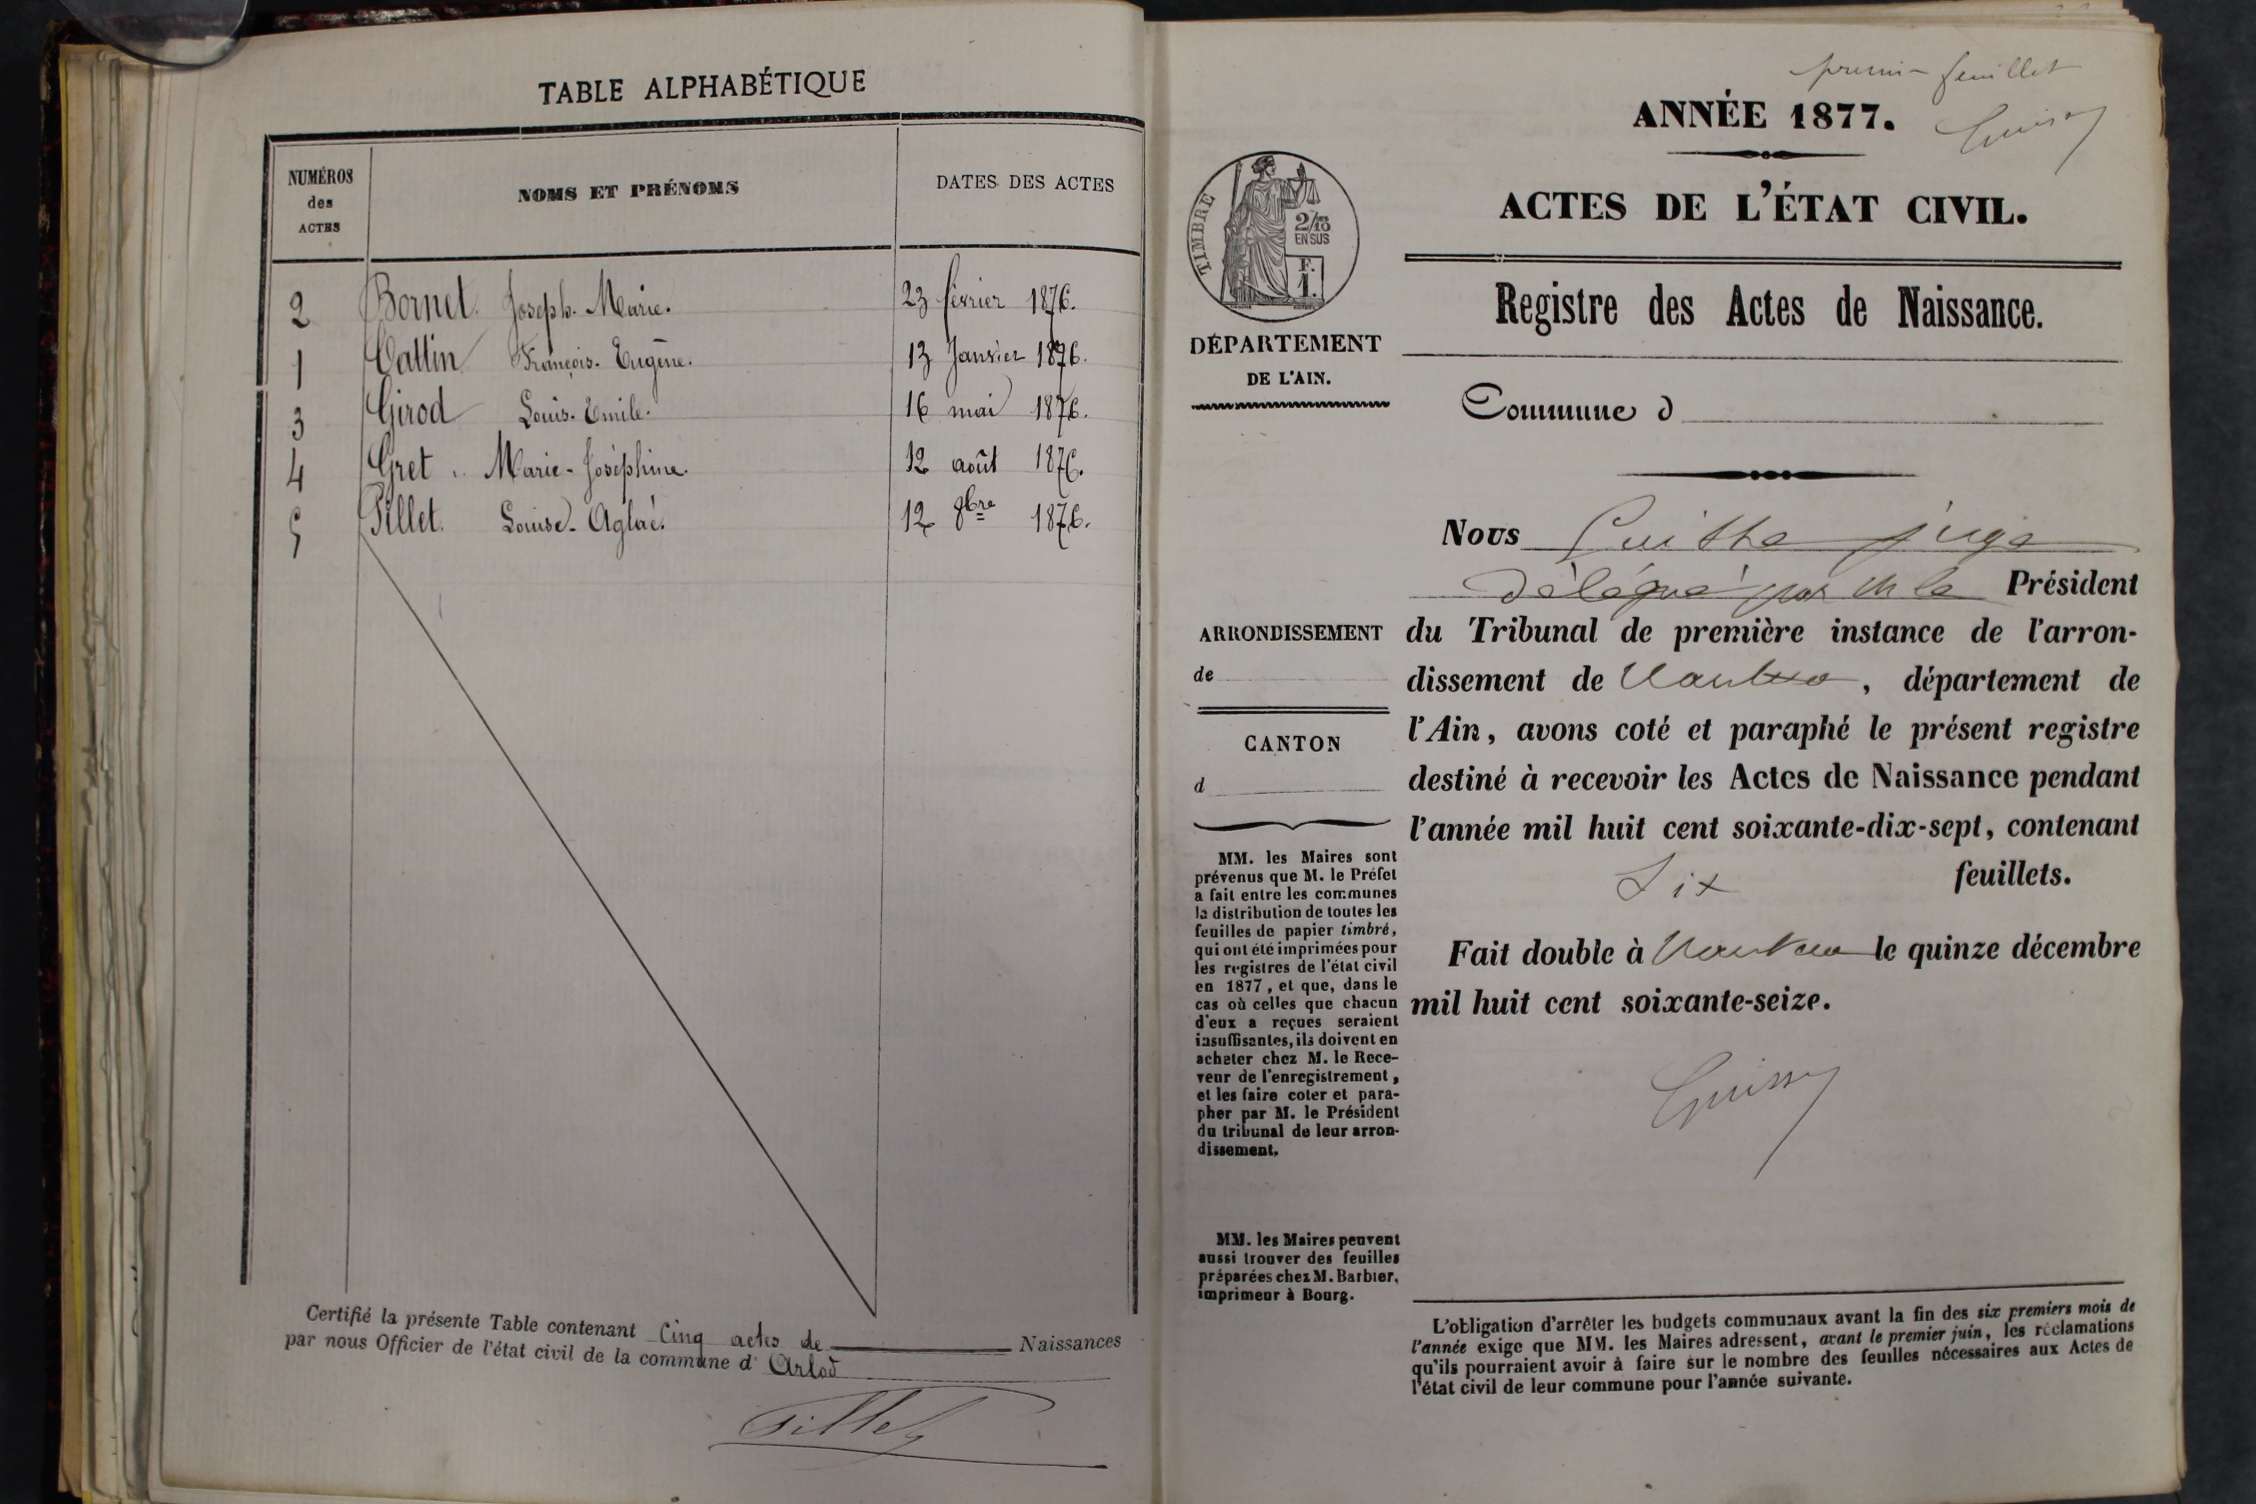 TABLE ALPHABÉTIQUE
NUMÉROS
des
ACTES
NOMS ET PRÉNOMS
DATES DES ACTES
2 Bornet Joseph-Marie. 23 février 1876.
1 Cattin François-Eugène. 13 Janvier 1876.
3 Girod Louis-Emile. 16 mai 1876.
4 Gret Marie-Joséphine. 12 août 1876.
5 Pillet Louise-Aglaé. 12 8bre 1876.
Certifié la présente Table contenant Cinq actes de Naissances
par nous Officier de l'état civil de la commune d' Arlod
Pillet
premier feuillet
ANNÉE 1877.
ACTES DE L'ÉTAT CIVIL.
Registre des Actes de Naissance.
TIMBRE
2/10
EN SUS
F.
1.
DÉPARTEMENT
DE L'AIN.
Commune d
ARRONDISSEMENT
de
CANTON
d
MM. les Maires sont
prévenus que M. le Préfet
a fait entre les communes
la distribution de toutes les
feuilles de papier timbré,
qui ont été imprimées pour
les registres de l'état civil
en 1877, et que, dans le
cas où celles que chacun
d'eux a reçues seraient
insuffisantes, ils doivent en
acheter chez M. le Rece-
veur de l'enregistrement,
et les faire coter et para-
pher par M. le Président
du tribunal de leur arron-
dissement.
MM. les Maires peuvent
aussi trouver des feuilles
préparées chez M. Barbier,
imprimeur à Bourg.
Nous juge
Délégué par M le Président
du Tribunal de première instance de l'arron-
dissement de Nantua, département de
l'Ain, avons coté et paraphé le présent registre
destiné à recevoir les Actes de Naissance pendant
l'année mil huit cent soixante-dix-sept, contenant
Six feuillets.
Fait double à Nantua le quinze décembre
mil huit cent soixante-seize.
L'obligation d'arrêter les budgets communaux avant la fin des six premiers mois de
l'année exige que MM. les Maires adressent, avant le premier juin, les réclamations
qu'ils pourraient avoir à faire sur le nombre des feuilles nécessaires aux Actes de
l'état civil de leur commune pour l'année suivante.